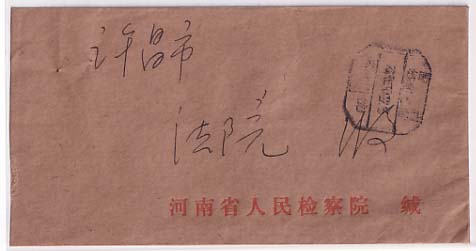 许昌市
法院 收
河南省人民检察院 缄